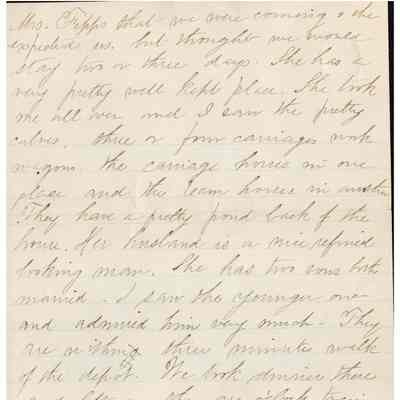 Mrs. Tripps that we were coming & she
expected us. but thought we would
stay two or three days. She has a
very pretty well kept place. She took
me all over and I saw the pretty
calves, three or four carriages work
wagons the carriage horses in one
place and the team horses in another
They have a pretty pond back of the
house. Her husband is a nice refined
looking man. She has two sons both
married. I saw the younger one
and admired him very much. They
are within three minutes walk
of the depot. We took dinner there
and the one o'clock train